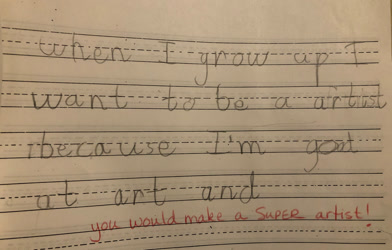 when I grow up I
want to be a artist
because I'm good
at art and
you would make a SUPER artist!